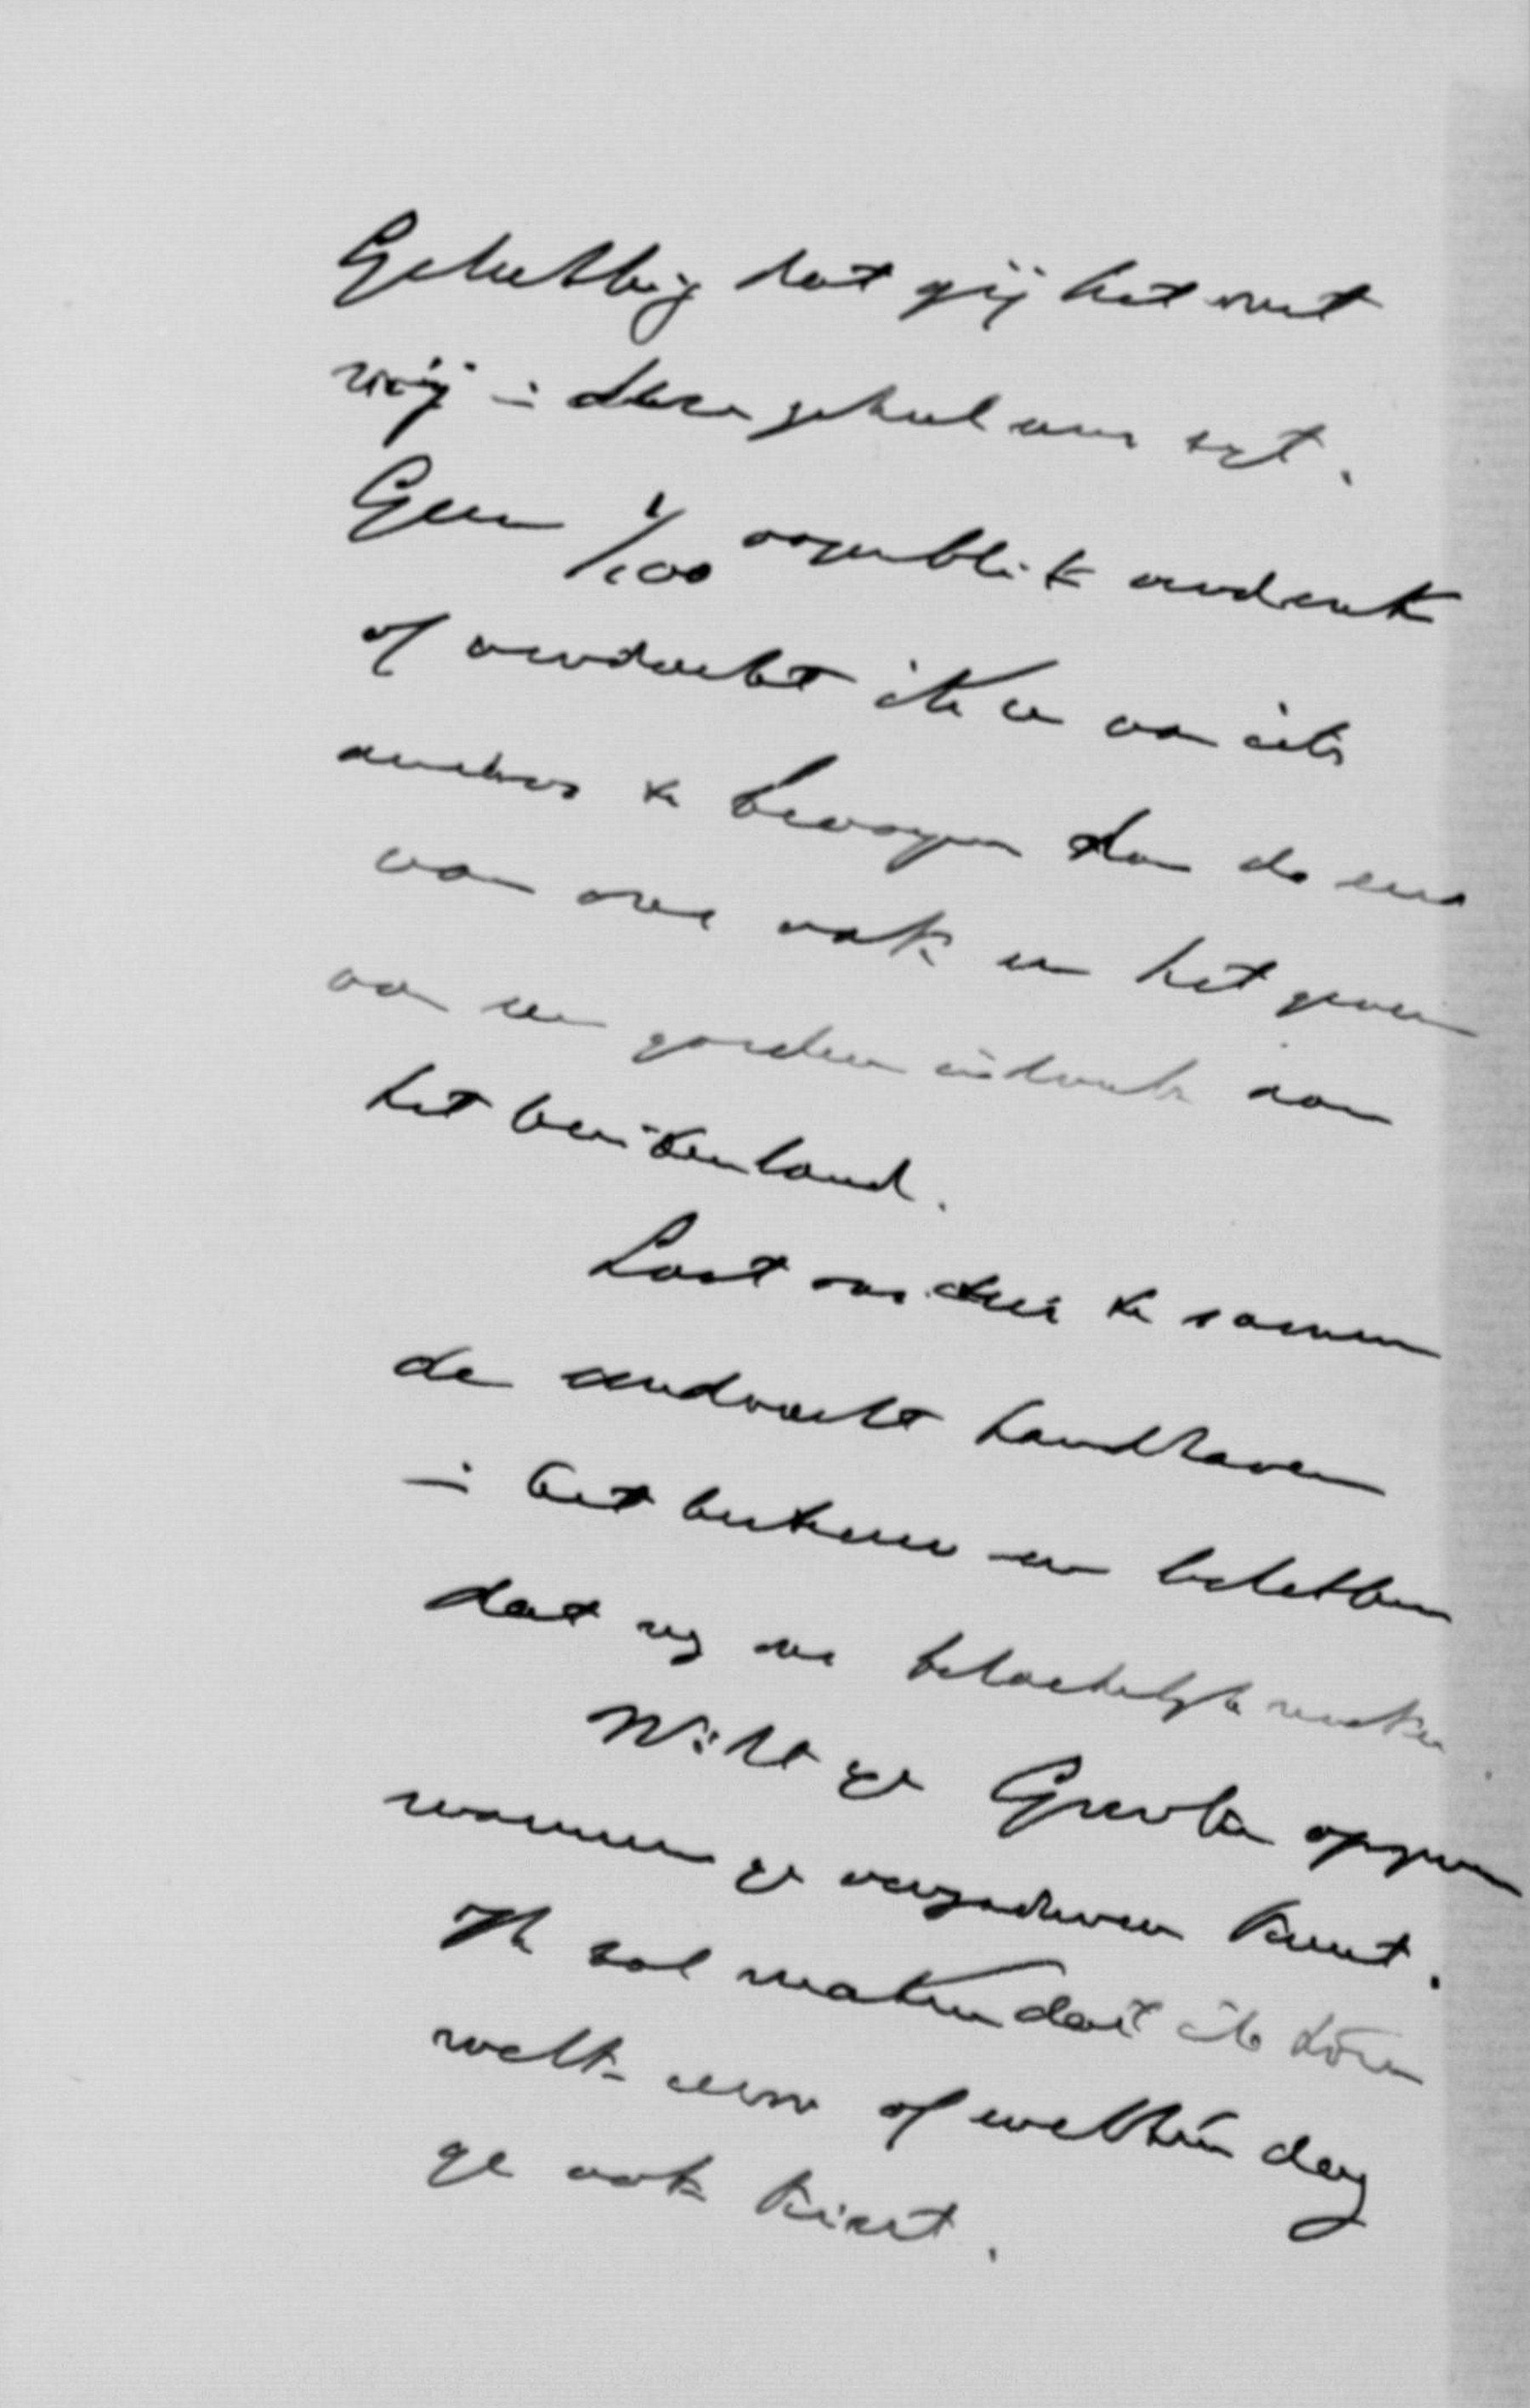 Gelukkig dat gij het met
mij in deze geheel eens zijt.
Geen 1/100 oogenblik verdenk
of verdacht ik u van iets
anders te beoogen dan de eer
van ons vak en het geven
van een goeden indruk aan
het buitenland.
Laat ons dus te samen
de eendracht handhaven
in het bestuur en beletten
dat wij ons belachelijk maken
Wilt ge Greve opgeven
wanneer ge vergaderen kunt.
Ik zal maken dat ik
welk uur of welken dag
ge ook kiest.